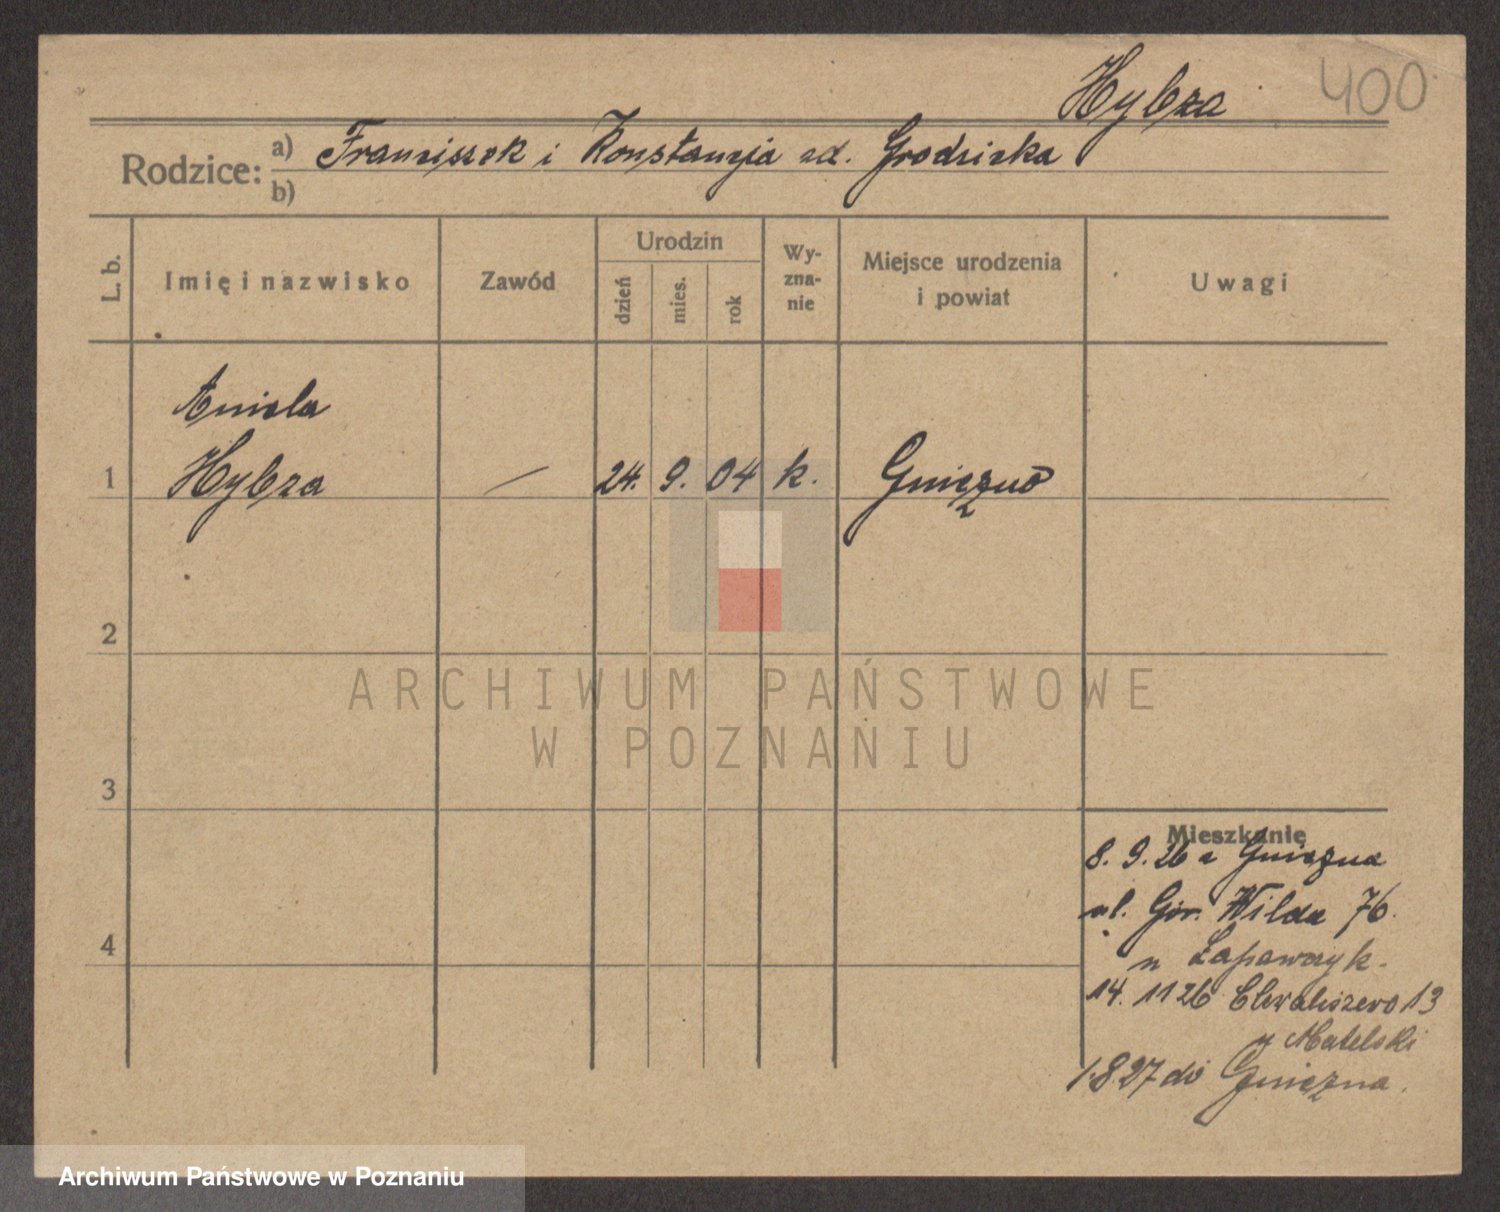 Hybza
400
Rodzice:
a) Franciszek i Konstancja zd. Grodzicka
b)
L. b.
Imię i nazwisko
Zawód
Urodzin
dzień
mies.
rok
Wy-
zna-
nie
Miejsce urodzenia
i powiat
Uwagi
Aniela
1 Hybza — 24. 9. 04 k. Gniezno
2
ARCHIWUM PAŃSTWOWE
W POZNANIU
3
Mieszkanie
8. 9. 26 z Gniezna
ul. Gór. Wilda 76.
4
u Łapawczyk.
14. 11 26 Chwaliszewo 13
u Matelski
1.8.27 do Gniezna.
Archiwum Państwowe w Poznaniu